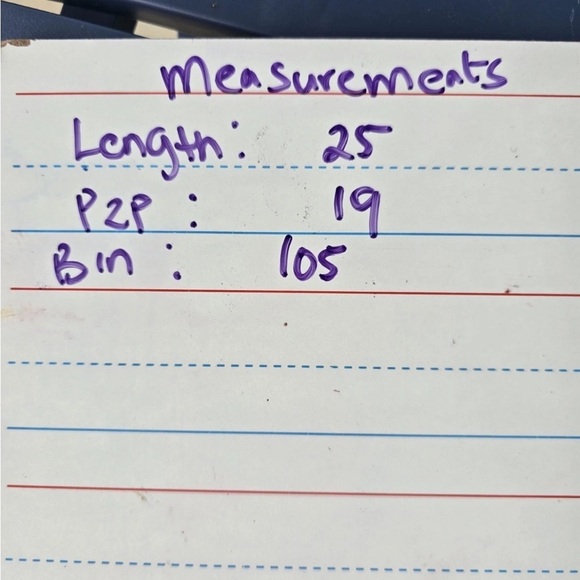 Measurements
Length: 25
P2P : 19
Bin : 105